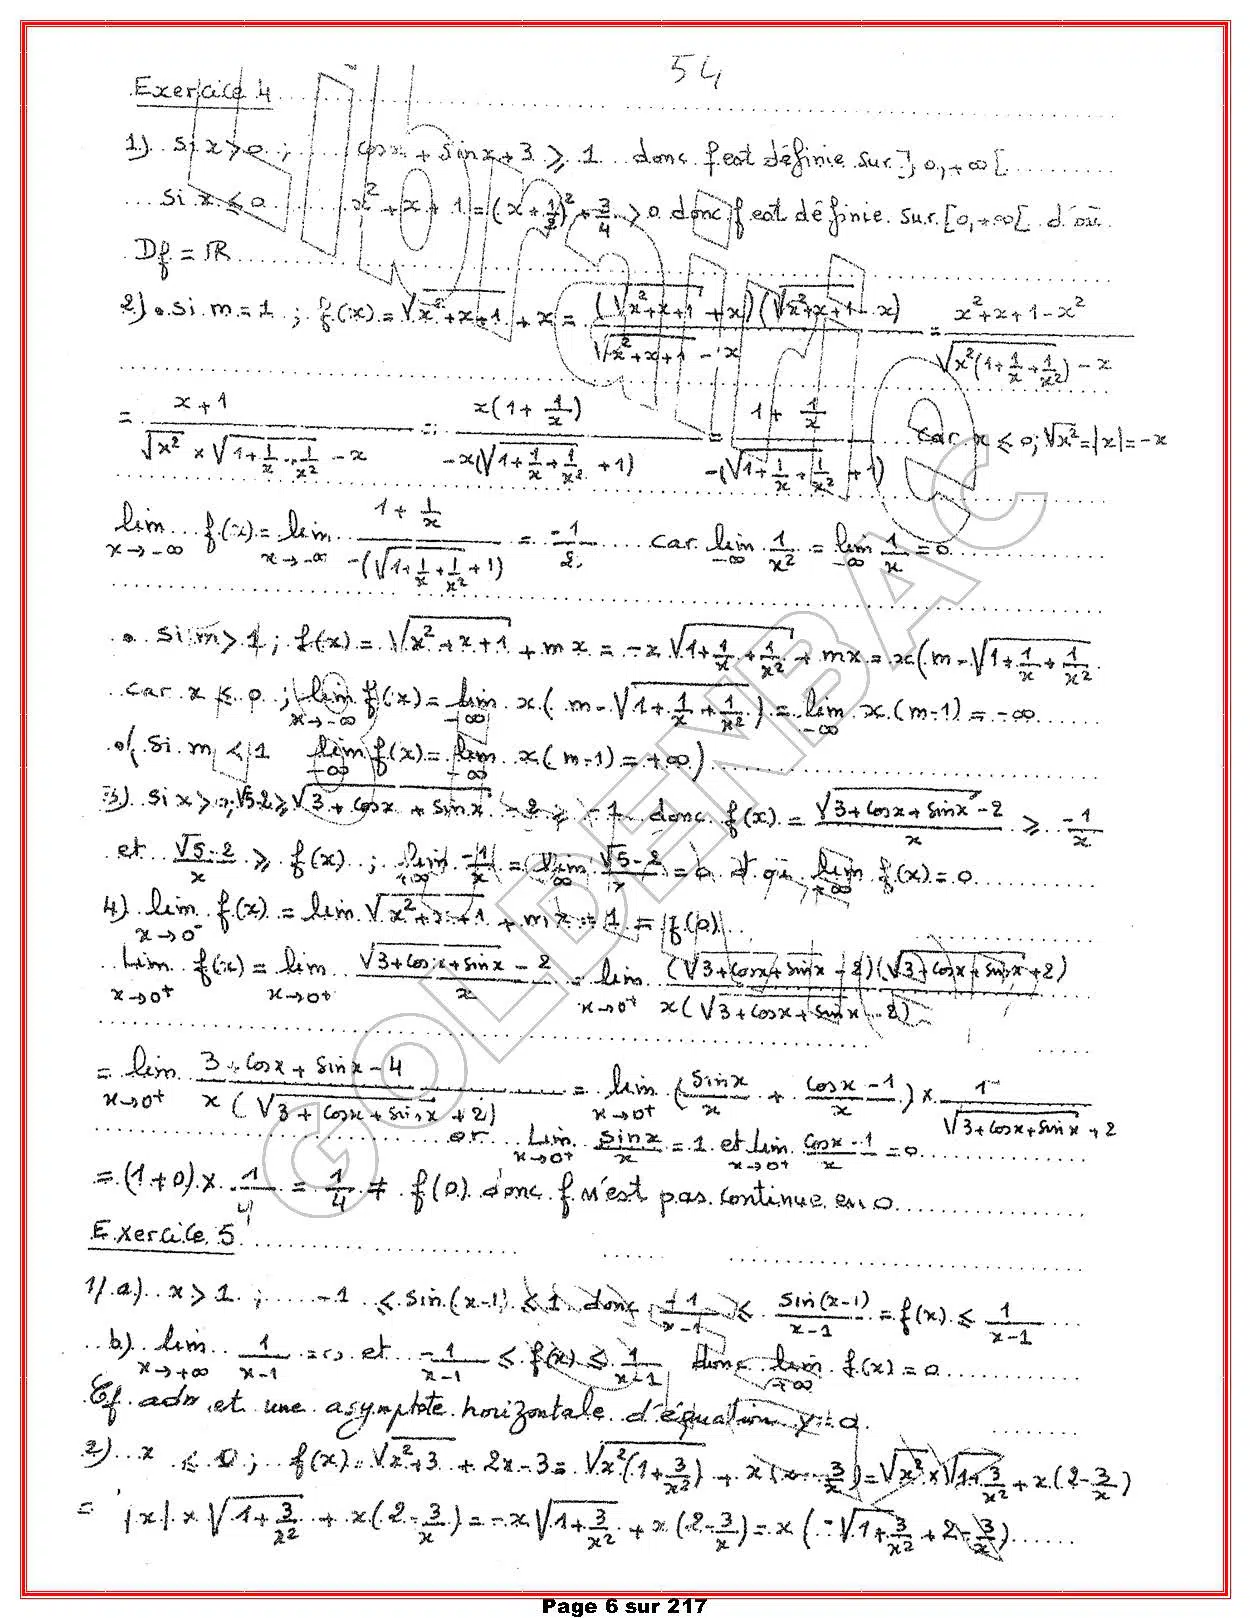 54
Exercice 4
1) si x > 0 ; cosx + sinx + 3 ⩾ 1 donc f est définie sur ]0,+∞[
si x ⩽ 0 x² + x + 1 = (x + 1/2)² + 3/4 > 0 donc f est définie sur [0,+∞[ d'où
Df = ℝ
2) • si m = 1 ; f(x) = √(x²+x+1) + x = (√(x²+x+1) + x)(√(x²+x+1) - x) / (√(x²+x+1) - x) = (x²+x+1-x²) / (√(x²(1+1/x+1/x²)) - x)
= (x+1) / (√x² × √(1+1/x+1/x²) - x) = x(1+1/x) / (-x(√(1+1/x+1/x²) + 1)) = (1+1/x) / (-(√(1+1/x+1/x²) + 1)) car x ⩽ 0 ; √x² = |x| = -x
lim x→-∞ f(x) = lim x→-∞ (1+1/x) / (-(√(1+1/x+1/x²)+1)) = -1/2 car lim -∞ 1/x² = lim -∞ 1/x = 0
• si m > 1 ; f(x) = √(x²+x+1) + mx = -x√(1+1/x+1/x²) + mx = x(m - √(1+1/x+1/x²)
car x ⩽ 0 ; lim x→-∞ f(x) = lim -∞ x(m - √(1+1/x+1/x²)) = lim -∞ x(m-1) = -∞
•( Si m < 1 lim -∞ f(x) = lim -∞ x(m-1) = +∞)
3) si x > 0 ; √5-2 ⩾ √(3+cosx+sinx) - 2 ⩾ -1 donc f(x) = (√(3+cosx+sinx) - 2)/x ⩾ -1/x
et (√5-2)/x ⩾ f(x) ; lim +∞ -1/x = lim ∞ (√5-2)/x = 0 d'où lim +∞ f(x) = 0
4) lim x→0⁻ f(x) = lim √(x²+x+1) + mx = 1 = f(0)
Lim x→0⁺ f(x) = lim x→0⁺ (√(3+cosx+sinx) - 2)/x = lim x→0⁺ (√(3+cosx+sinx) - 2)(√(3+cosx+sinx) + 2) / x(√(3+cosx+sinx) - 2)
= lim x→0⁺ (3+cosx+sinx-4) / x(√(3+cosx+sinx) + 2) = lim x→0⁺ (sinx/x + (cosx-1)/x) × 1/(√(3+cosx+sinx) + 2)
or Lim x→0⁺ sinx/x = 1 et lim x→0⁺ (cosx-1)/x = 0
= (1+0) × 1/4 = 1/4 ≠ f(0) donc f n'est pas continue en 0
Exercice 5
1/ a) x > 1 ; -1 ⩽ sin(x-1) ⩽ 1 donc -1/(x-1) ⩽ sin(x-1)/(x-1) = f(x) ⩽ 1/(x-1)
b) lim x→+∞ 1/(x-1) = 0 et -1/(x-1) ⩽ f(x) ⩽ 1/(x-1) donc lim +∞ f(x) = 0
et une asymptote horizontale d'équation y = 0
2) x ⩽ 0 ; f(x) = √(x²+3) + 2x-3 = √(x²(1+3/x²)) + x( - 3/x) = √x² × √(1+3/x²) + x(2-3/x)
= |x| × √(1+3/x²) + x(2-3/x) = -x√(1+3/x²) + x(2-3/x) = x(-√(1+3/x²) + 2-3/x)
GOLDENBAC
Page 6 sur 217